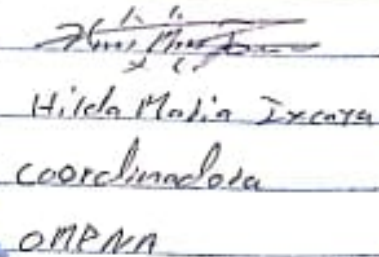 Hilda Maria Ixcaya
coordinadora
OMPNA